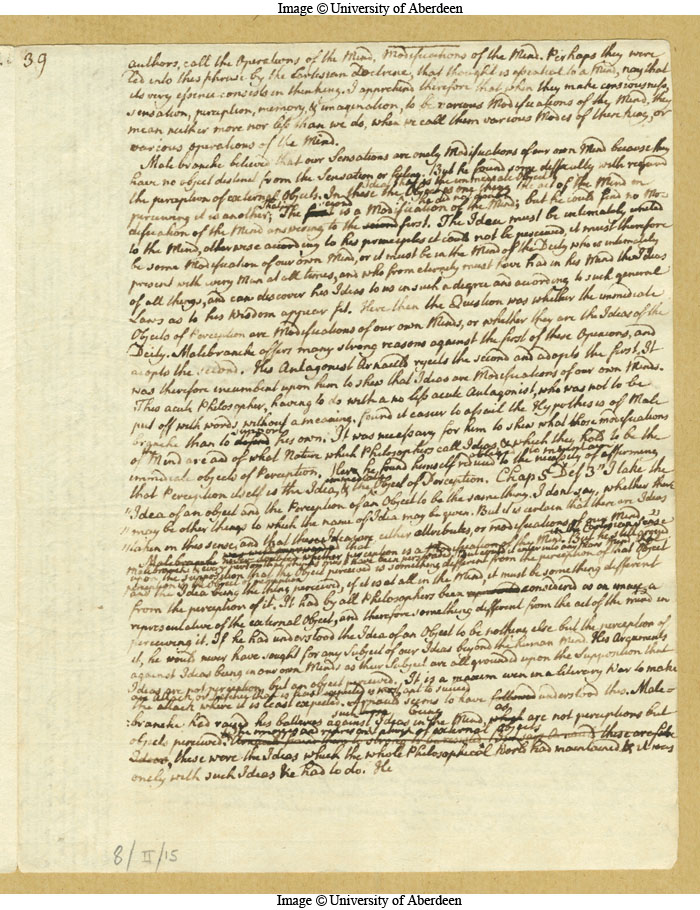 Image © University of Aberdeen
39
authors, call the Operations of the Mind, Modifications of the Mind. Perhaps they were
led into this phrase by the Cartesian Doctrine, that thought is essential to a Mind, nay that
its very essence consists in thinking. I apprehend therefore that when they make consciousness,
sensation, perception, memory, & imagination, to be various Modifications of the Mind, they
mean neither more nor less than we do, when we call them various Modes of thinking, or
various operations of the Mind.
Malebranche believed that our Sensations are onely Modifications of our own Mind because they
have no object distinct from the Sensation or feeling. But he found some difficulty with regard
the perception of external Objects. In these the Idea that is the immediate Object is one thing the act of the Mind in
perceiving it is another; The second is a Modification of the Mind; but he could find no Mo-
dification of the Mind answering to the first. The Idea must be intimately united
to the Mind, otherwise according to his principles it could not be perceived, it must therefore
be some Modification of our own Mind, or it must be in the Mind of the Deity who is intimately
present with every Man at all times, and who from eternity must have had in his Mind the Ideas
of all things, and can discover his Ideas to us in such a degree and according to such general
Laws as to his Wisdom appear fit. Here then the Question was whether the immediate
Objects of Perception are Modifications of our own Minds, or whether they are the Ideas of the
Deity. Malebranche offers many strong reasons against the first of these Opinions, and
adopts the second. His Antagonist Arnauld rejects the second and adopts the first. It
was therefore incumbent upon him to shew that Ideas are Modifications of our own Minds.
This acute Philosopher, having to do with a no less acute Antagonist, who was not to be
put off with words without a meaning, found it easier to assail the Hypothesis of Male
branche than to support his own. It was necessary for him to shew what those modifications
of Mind are and of what Nature which Philosophers call Ideas & which they hold to be the
immediate objects of Perception. Here he found himself reduced to the necessity of affirming
that Perception itself is the Idea, & the immediate Object of Perception. Chap 5 Def 3 "I take the
"Idea of an object and the Perception of an Object to be the same thing. I dont say, whether there
"may be other things to which the name of Idea may be given. But it is certain that there are Ideas
"taken in this sense, and that these Ideas are either attributes, or modifications of our Mind."
Malebranche
upon the supposition that the Object perceived is something different from the perception of that Object
and the Idea being the thing perceived, if it is at all in the Mind, it must be something different
from the perception of it. It had by all Philosophers been considered as an image a
representative of the external Object, and therefore something different from the act of the mind in
perceiving it. If he had understood the Idea of an Object to be nothing else but the perception of
it, he would never have sought for any Subject of our Ideas beyond the human Mind. His Arguments
against Ideas being in our own Minds as their Subject are all grounded upon the Supposition that
Ideas are not perceptions but an object perceived. It is a maxim even in a literary War to make
the attack where it is least expected. Arnauld seems to have understood this. Male-
branche had raised his batteries against Ideas in the Mind, which are not perceptions but
objects perceived.
Ideas, these were the Ideas which the whole Philosophical World had maintained & it was
onely with such Ideas he had to do. He
8/II/15
Image © University of Aberdeen